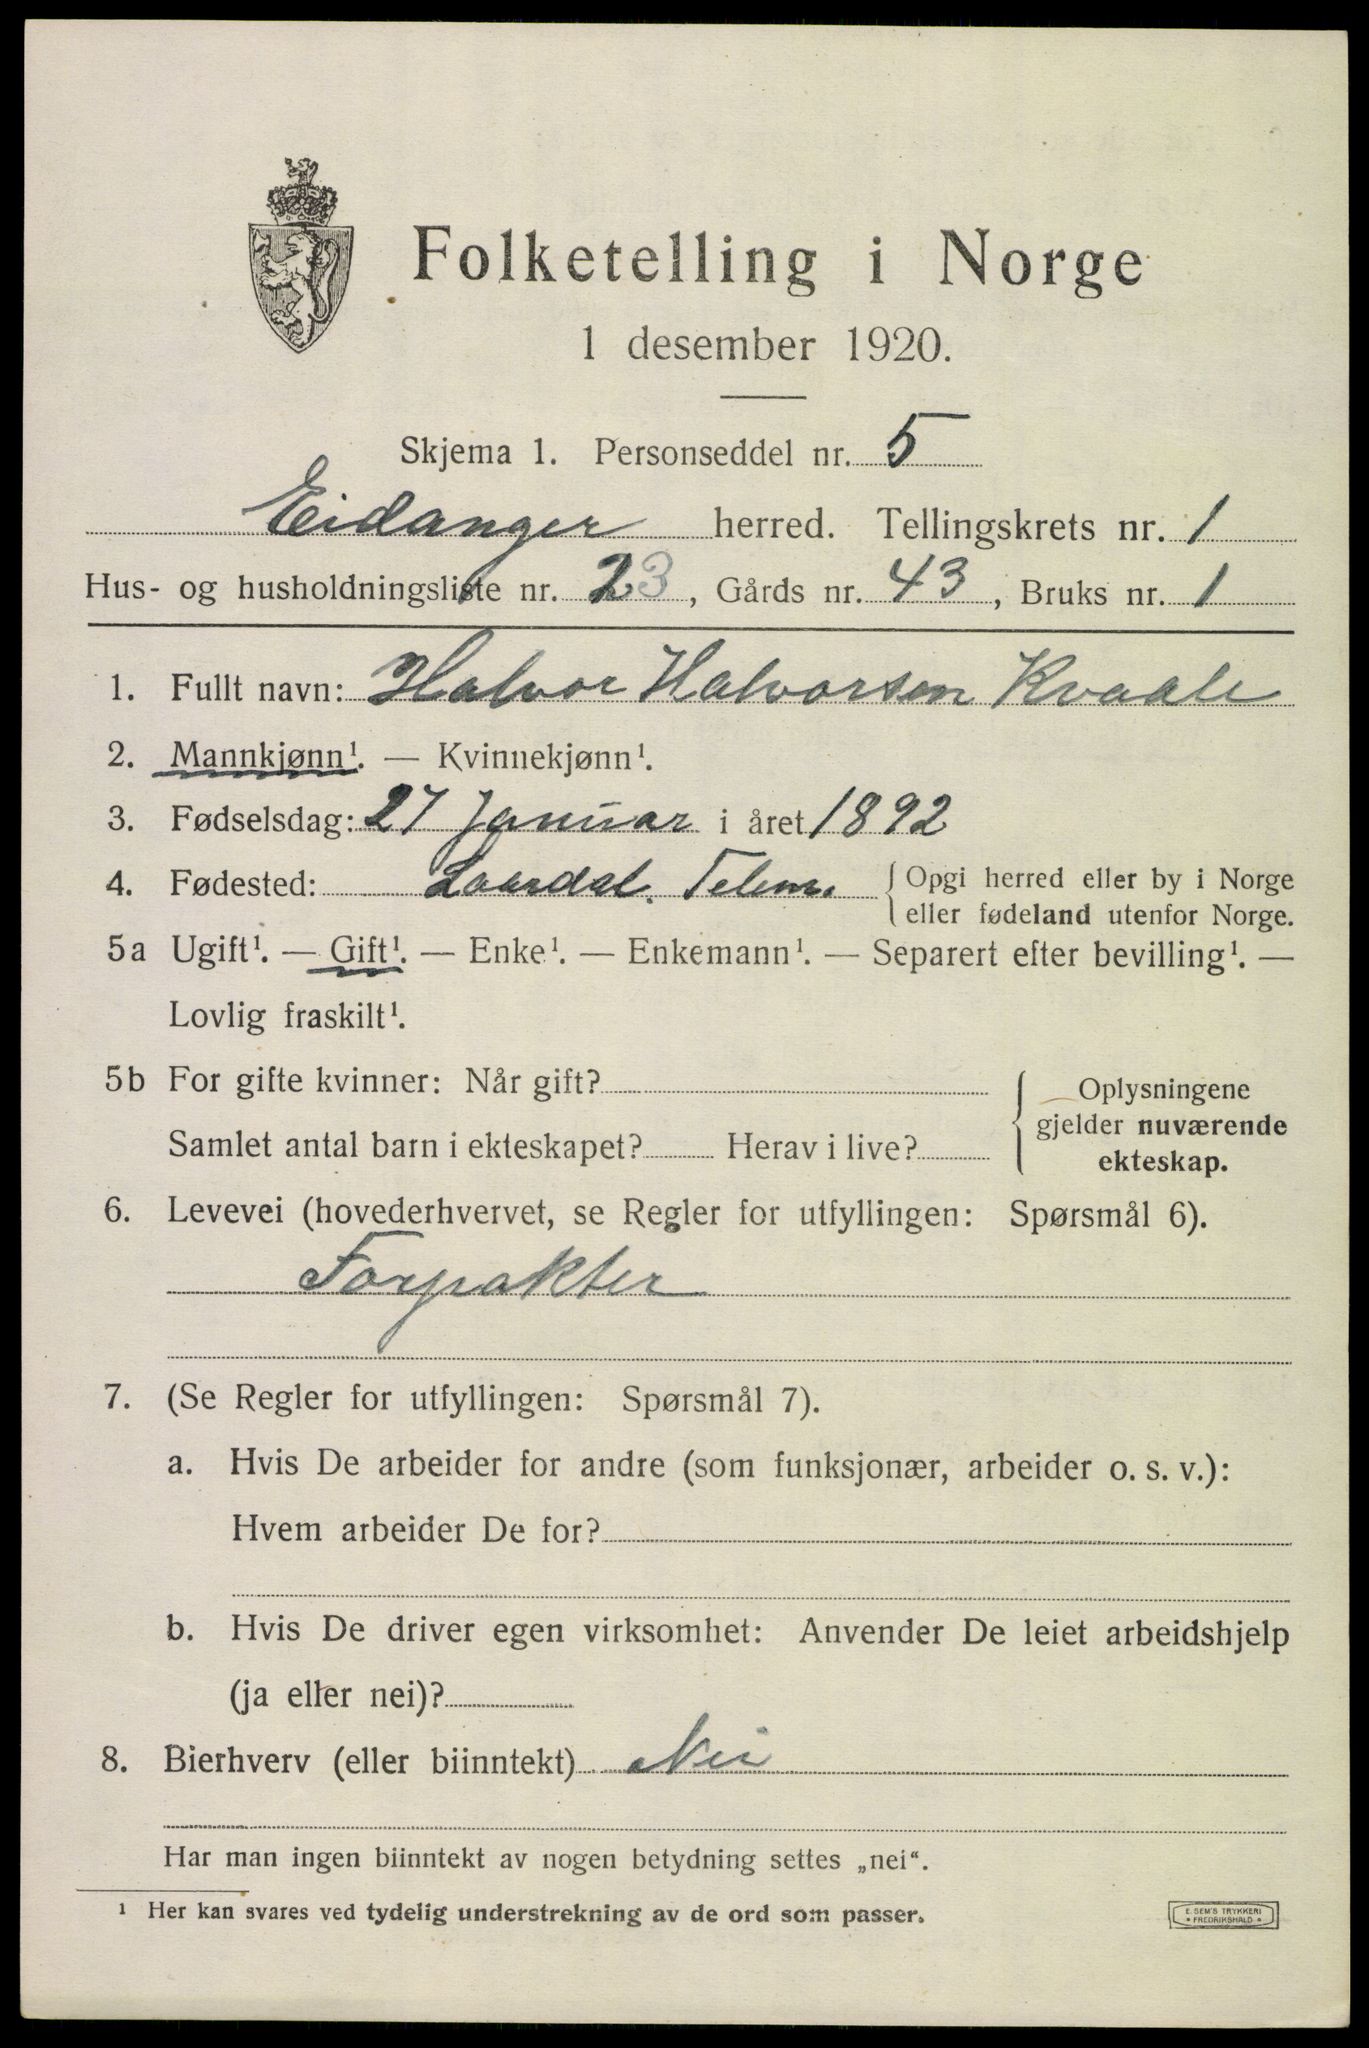 Folketelling i Norge
1 desember 1920.
Skjema 1. Personseddel nr. 5
Eidanger herred. Tellingskrets nr. 1
Hus- og husholdningsliste nr. 23, Gårds nr. 43, Bruks nr. 1
1. Fullt navn: Halvor Halvorsen Kvaale
2. Mannkjønn¹. — Kvinnekjønn¹.
3. Fødselsdag: 27 Januar i året 1892
4. Fødested: Laardal. Telem. { Opgi herred eller by i Norge
eller fødeland utenfor Norge.
5a Ugift¹. — Gift¹. — Enke¹. — Enkemann¹. — Separert efter bevilling¹. —
Lovlig fraskilt¹.
5b For gifte kvinner: Når gift?
Samlet antal barn i ekteskapet? Herav i live?
Oplysningene
gjelder nuværende
ekteskap.
6. Levevei (hovederhvervet, se Regler for utfyllingen: Spørsmål 6).
Forpakter
7. (Se Regler for utfyllingen: Spørsmål 7).
a. Hvis De arbeider for andre (som funksjonær, arbeider o. s. v.):
Hvem arbeider De for?
b. Hvis De driver egen virksomhet: Anvender De leiet arbeidshjelp
(ja eller nei)?
8. Bierhverv (eller biinntekt) Nei
Har man ingen biinntekt av nogen betydning settes „nei“.
¹ Her kan svares ved tydelig understrekning av de ord som passer.
E. SEM'S TRYKKERI
• FREDRIKSHALD •